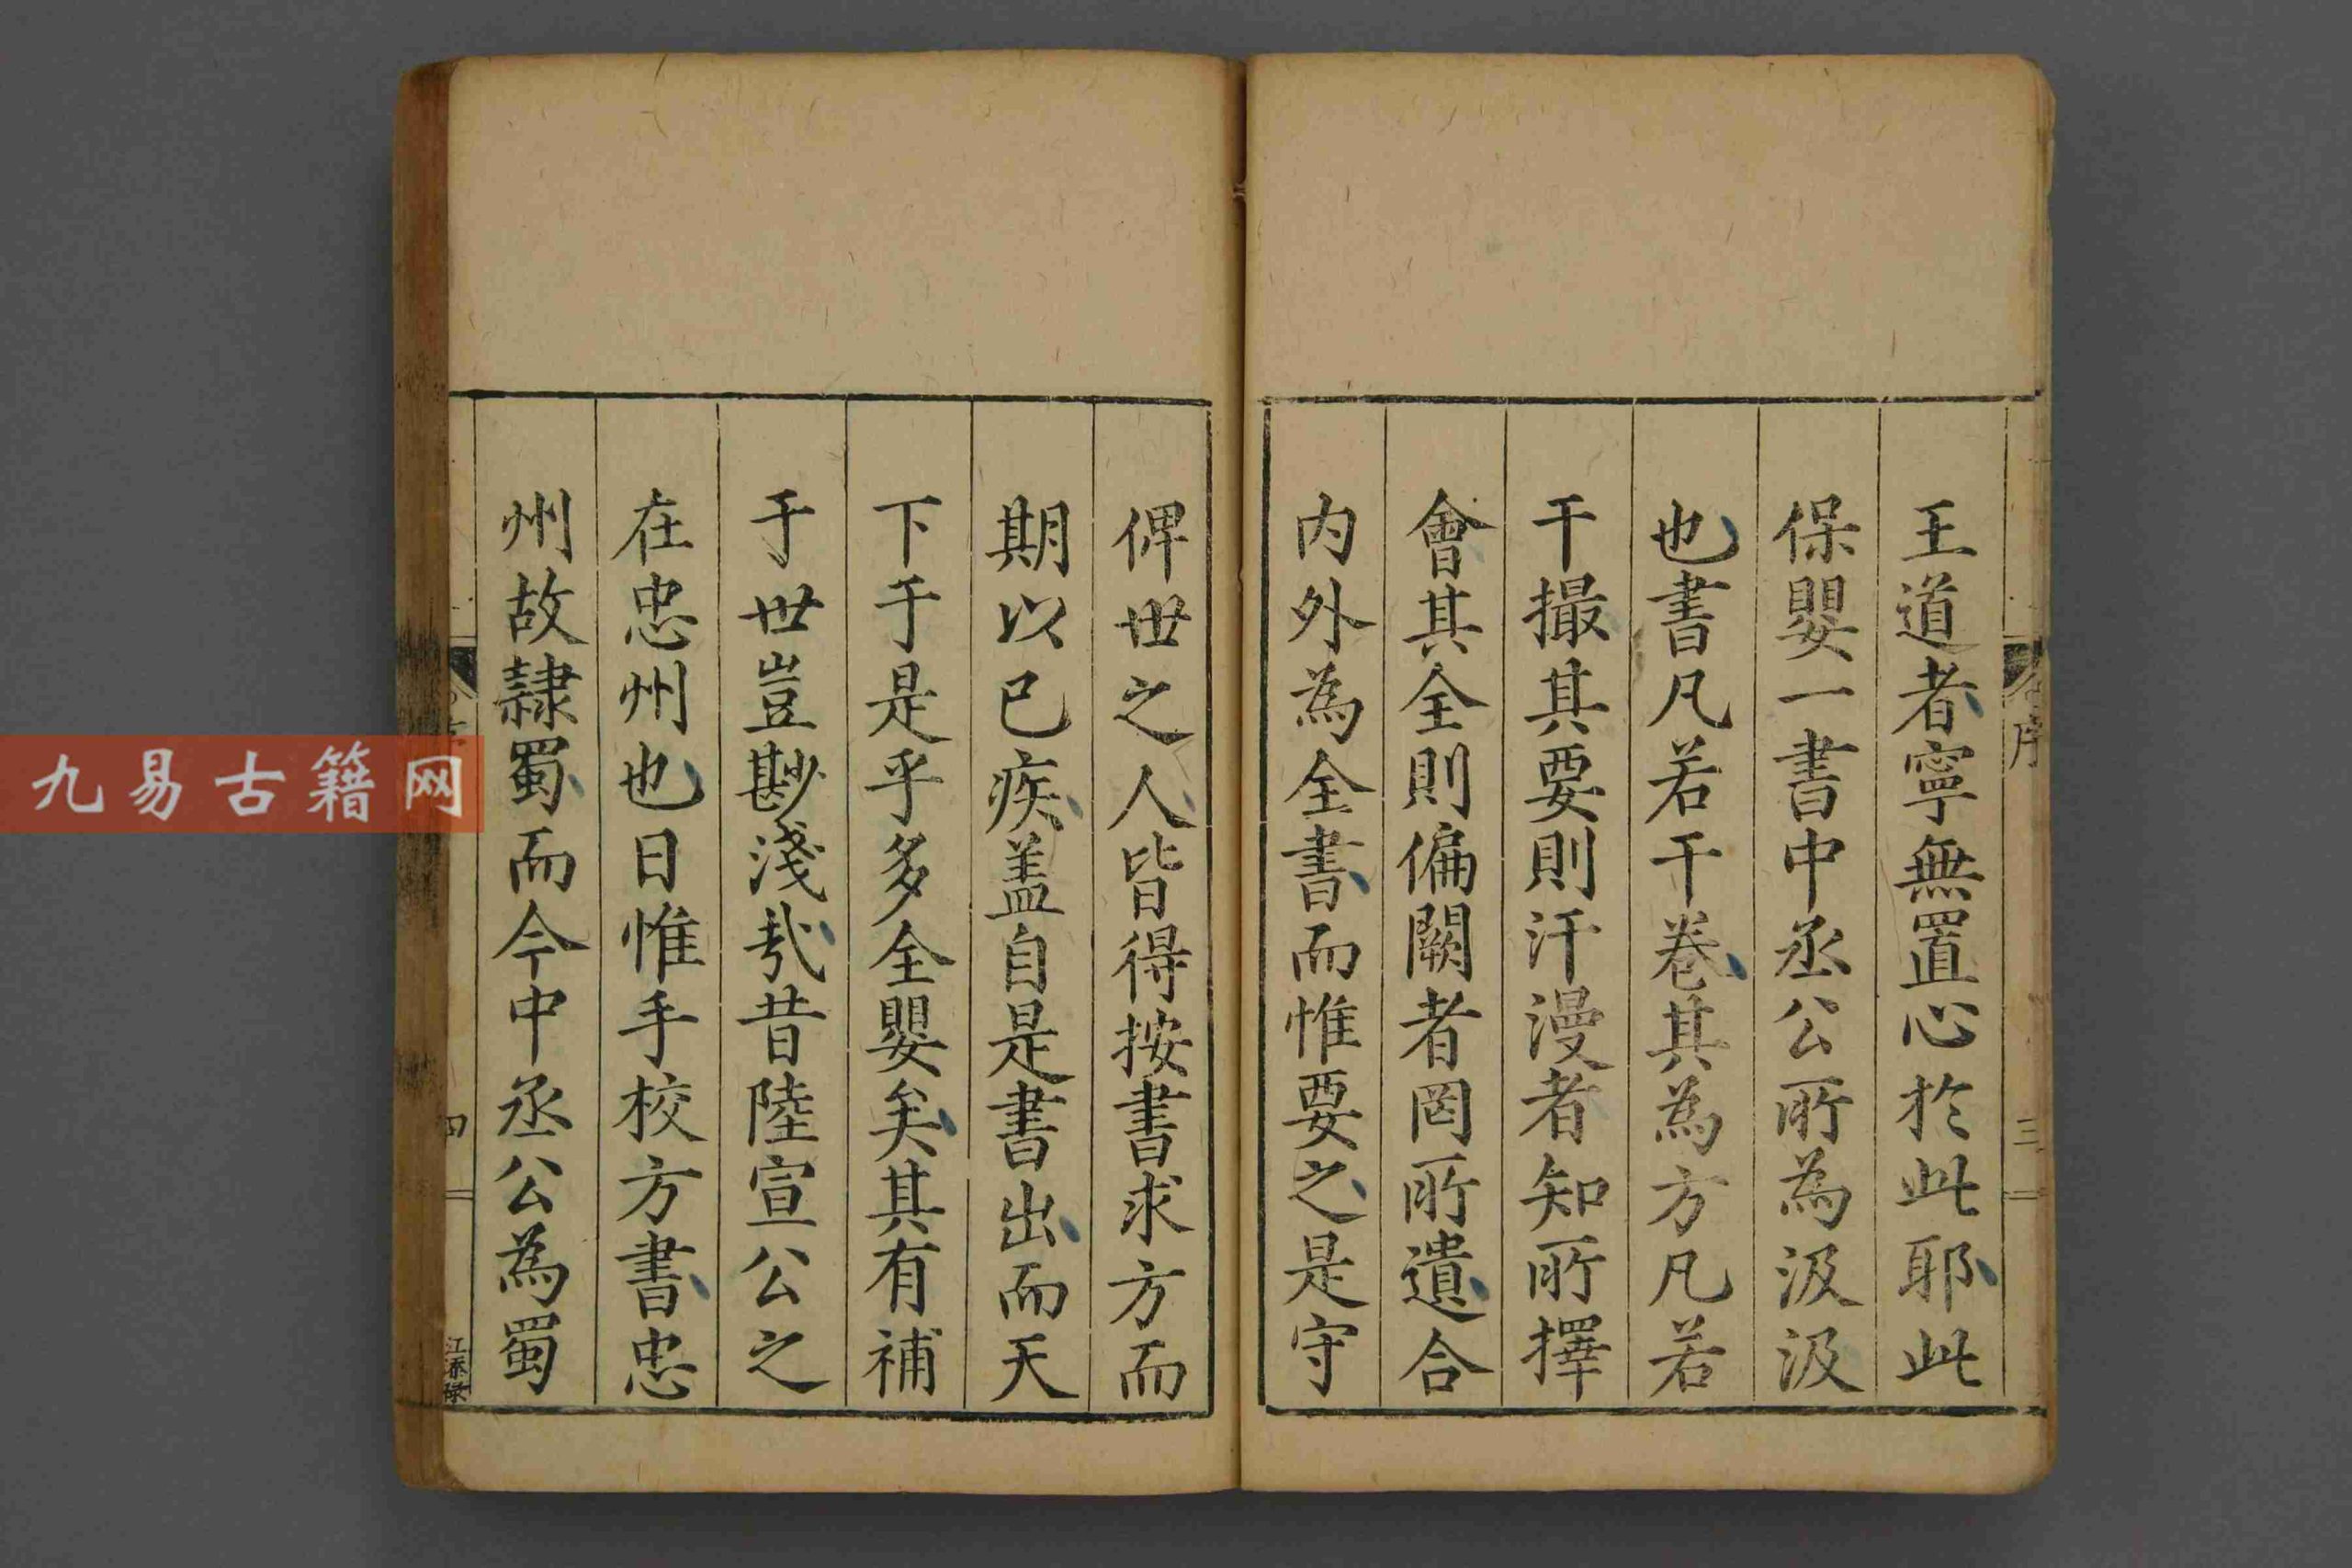 王道者寧無置心於此耶此
保嬰一書中丞公所為汲汲
也書凡若干卷其為方凡若
干撮其要則汗漫者知所擇
會其全則偏闕者罔所遺合
内外為全書而惟要之是守
序
三
俾世之人皆得按書求方而
期以已疾盖自是書出而天
下于是乎多全嬰矣其有補
于世豈尠淺哉昔陸宣公之
在忠州也日惟手校方書忠
州故隷蜀而今中丞公為蜀
四
九易古籍网